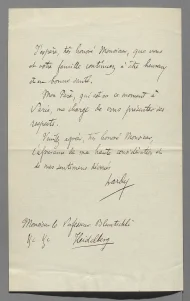 J'espère, très honoré Monsieur, que vous
et votre famille continuez à être heureux
et en bonne santé.
Mon Père, qui est en ce moment à
Paris, me charge de vous présenter ses
respects.
Veuillez agréer, très honoré Monsieur,
l'expression de ma haute considération et
de mes sentiments dévoués
Monsieur le Professeur Bluntschli
&c &c Heidelberg